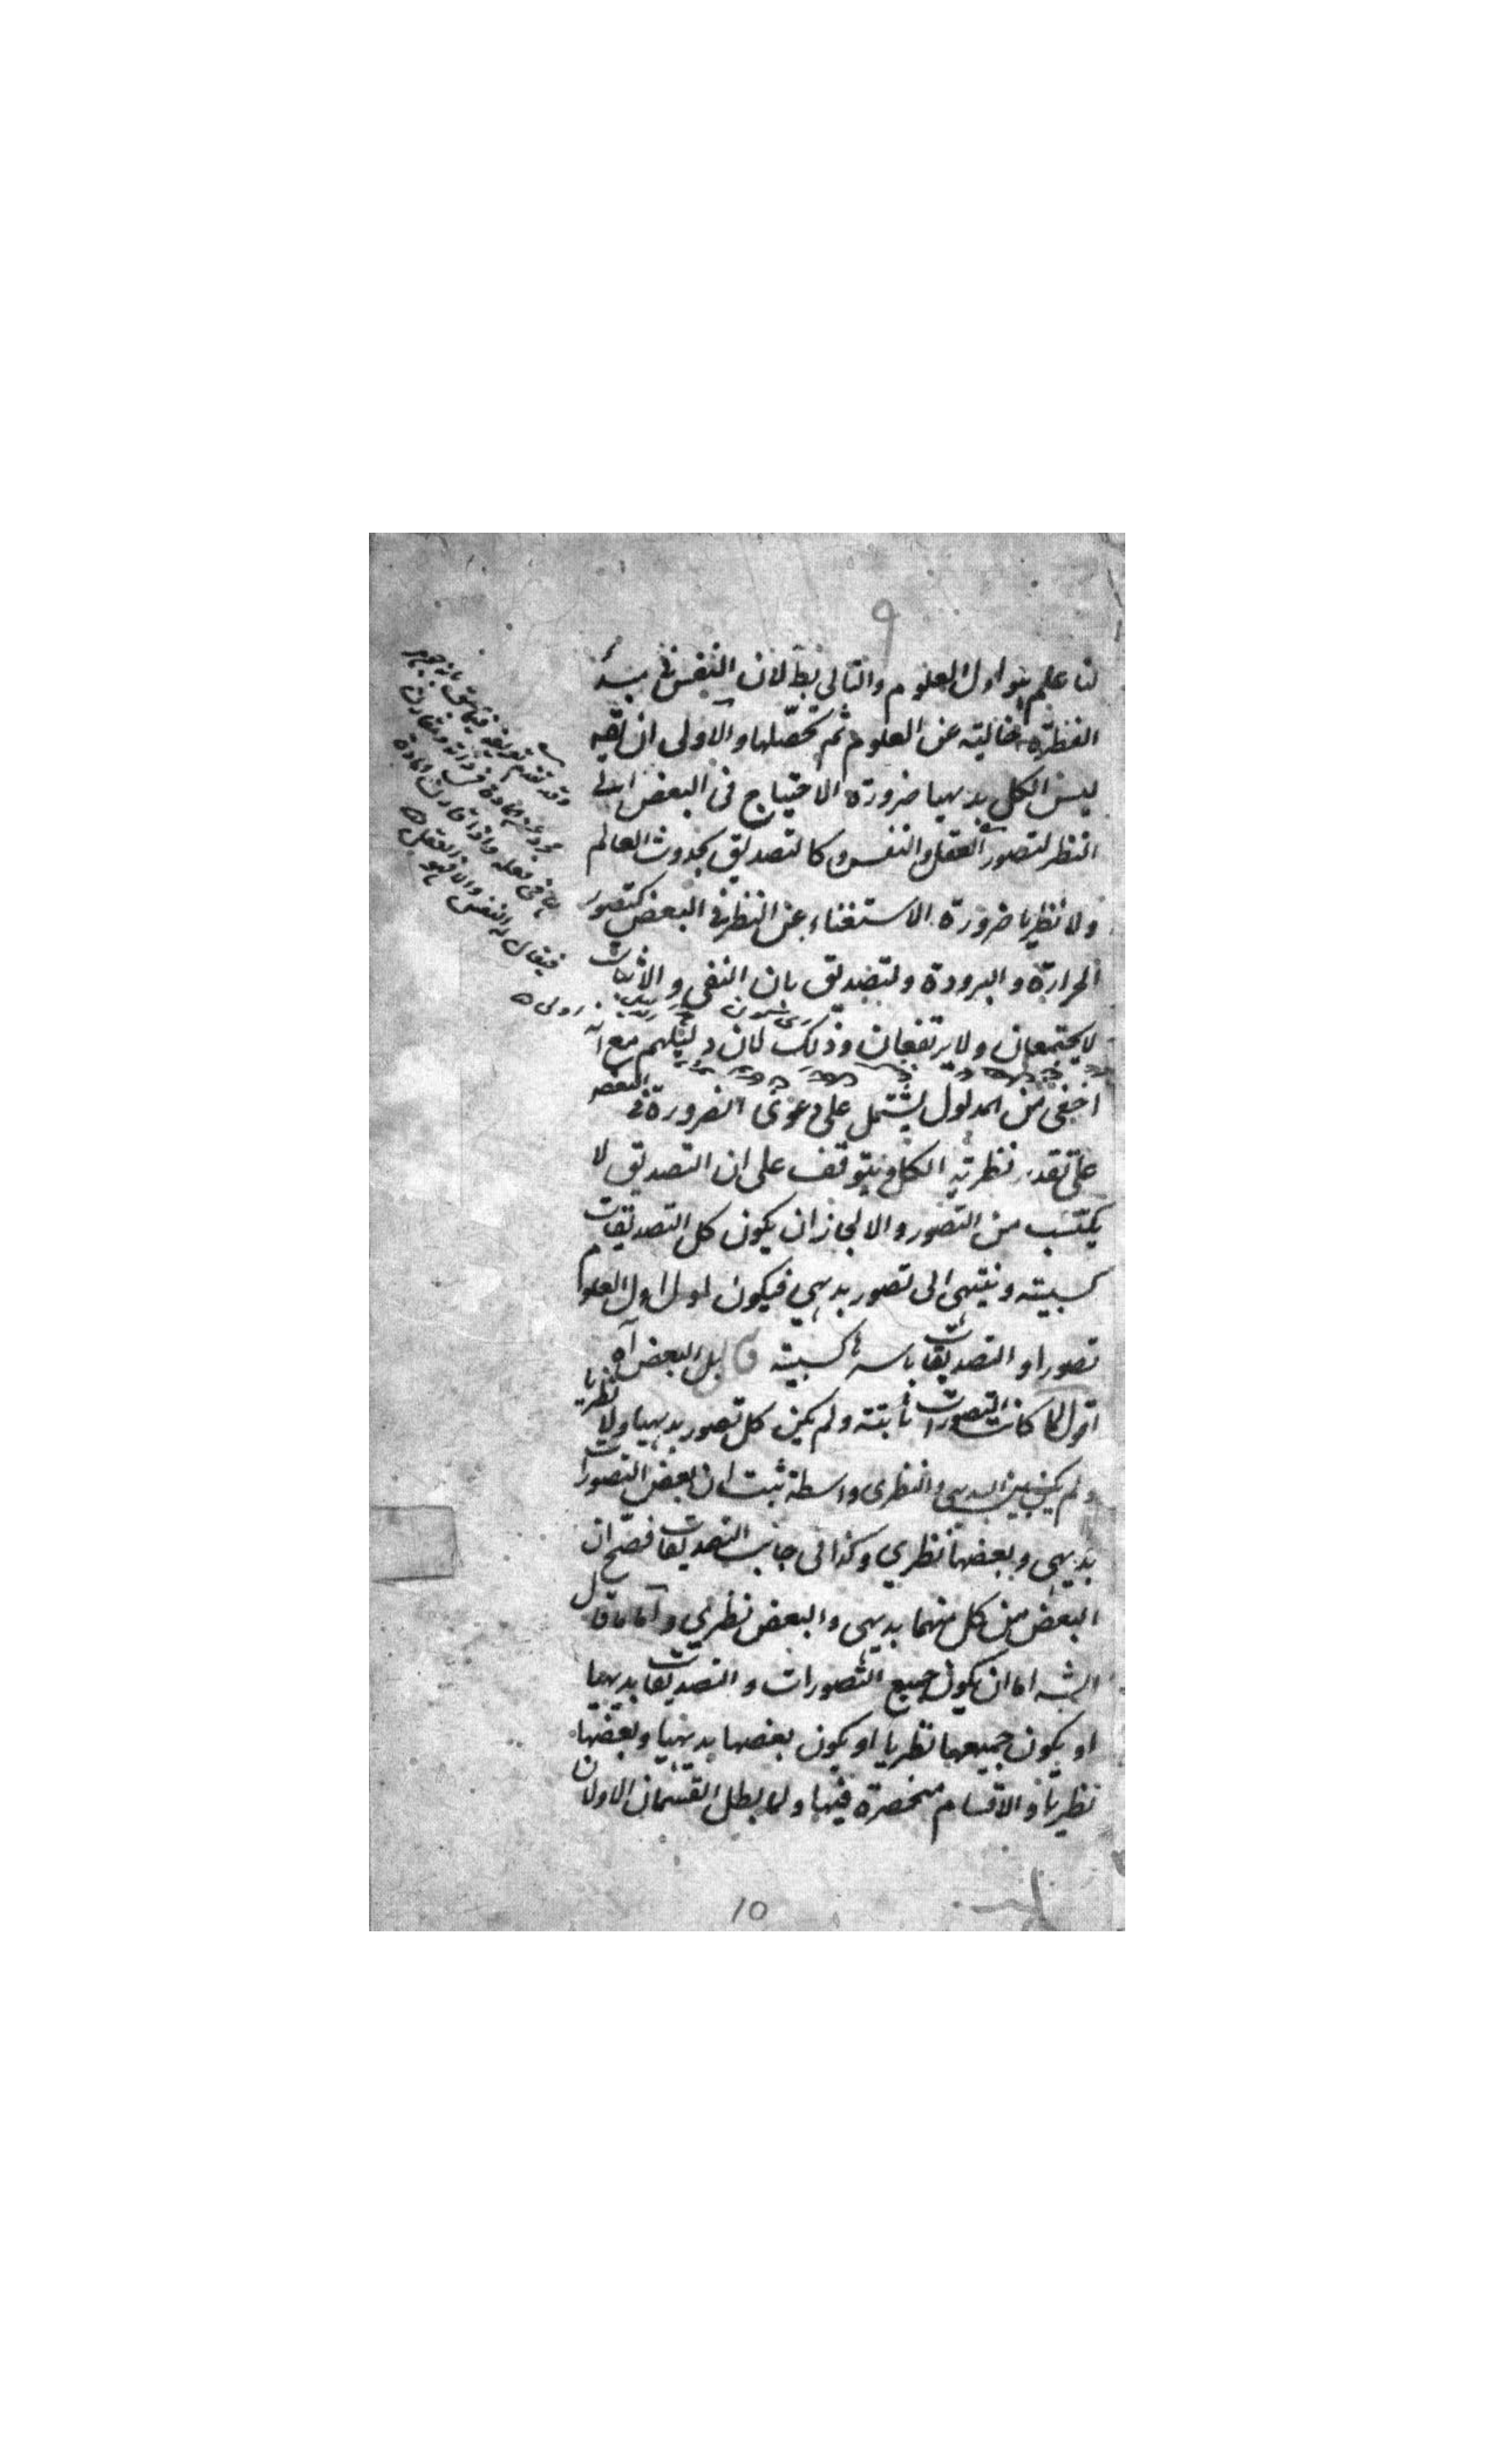 ٩
لنا علم هو اول العلوم والتالى بط لان النفس فى مبدأ
الفطرة خالية عن العلوم ثم تحصلها والاولى ان
ليس الكل بديهيا ضرورة الاحتياج فى البعض الى
النظر كتصور العقل والنفس وكالتصديق بحدوث العالم
ولا نظريا ضرورة الاستغناء عن النظر فى البعض كتصور
الحرارة والبرودة وكتصديق بان النفى والاثبات
لا يجتمعان ولا يرتفعان وذلك لان دليلهم مع انه
اخفى من المدلول يشتمل على دعوى الضرورة فى البعض
على تقدير نظرية الكل ويتوقف على ان التصديق لا
يكتسب من التصور والا لجاز ان يكون كل التصديقات
كسبية وينتهى الى تصور بديهى فيكون اول العلوم
تصورا والتصديقات باسرها كسبية قال بل البعض آه
اقول لما كانت التصورات ثابتة ولم يكن كل تصور بديهيا ولا نظريا
ولم يكن بين البديهى والنظرى واسطة ثبت ان بعض التصورات
بديهى وبعضها نظرى وكذا فى جانب التصديقات فصح ان
البعض من كل منهما بديهى والبعض نظرى واما ما قال
الشه اما ان يكون جميع التصورات والتصديقات بديهيا
او يكون جميعها نظريا او يكون بعضها بديهيا وبعضها
نظريا والاقسام منحصرة فيها ولما بطل القسمان الاولان
وقد تقدم تعريفه فيما سبق بانه جوهر
مجرد عن المادة فى ذاته ومقارن
لها فى فعله واذا قارن المادة
فيقال له النفس والا فهو العقل
10